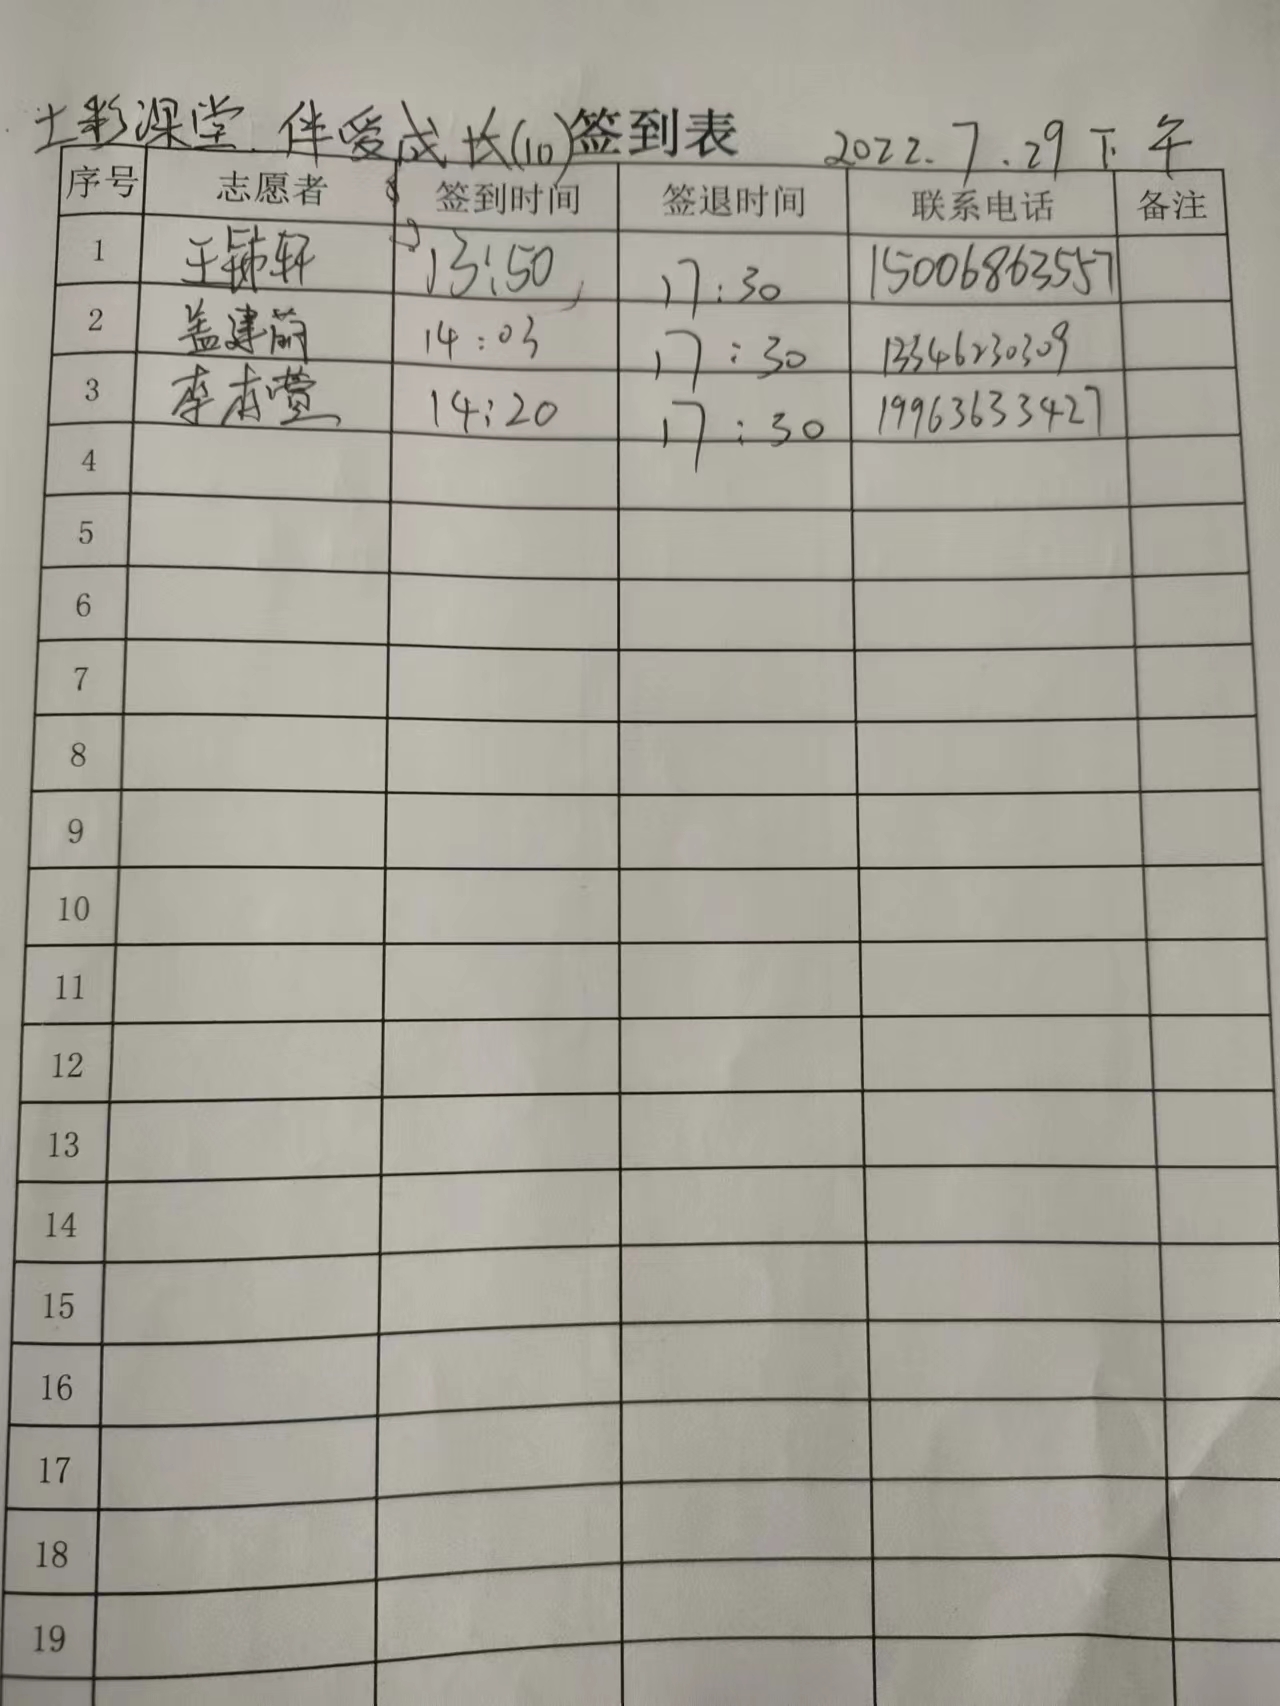 七彩课堂.伴爱成长(10)签到表 2022.7.29下午
序号 志愿者 签到时间 签退时间 联系电话 备注
1 王 轩 13:50 17:30 15006863557
2 盖建蔚 14:03 17:30 13346230309
3 李 萱 14:20 17:30 19963633427
4
5
6
7
8
9
10
11
12
13
14
15
16
17
18
19